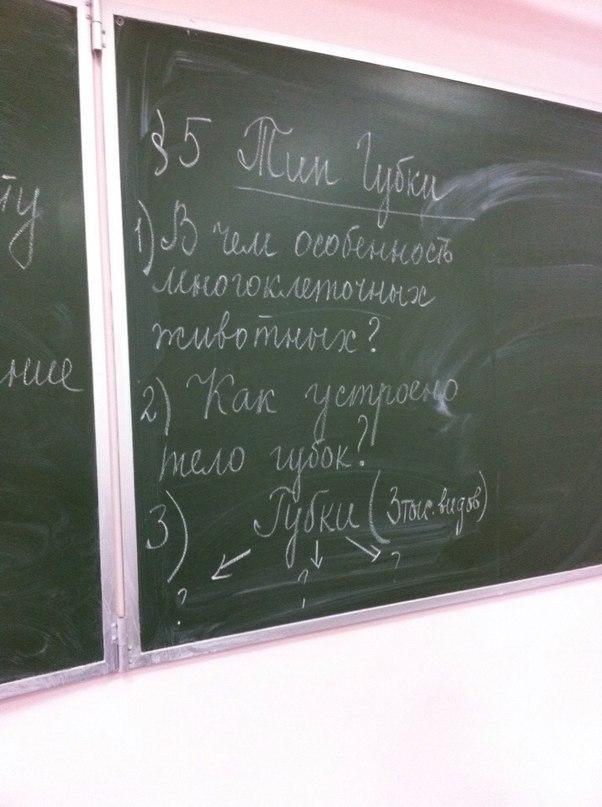 ту
ние
§5 Тип Губки
1) В чем особенность
многоклеточных
животных?
2) Как устроено
тело губок?
3) Губки (3 тыс. видов)
? ? ?